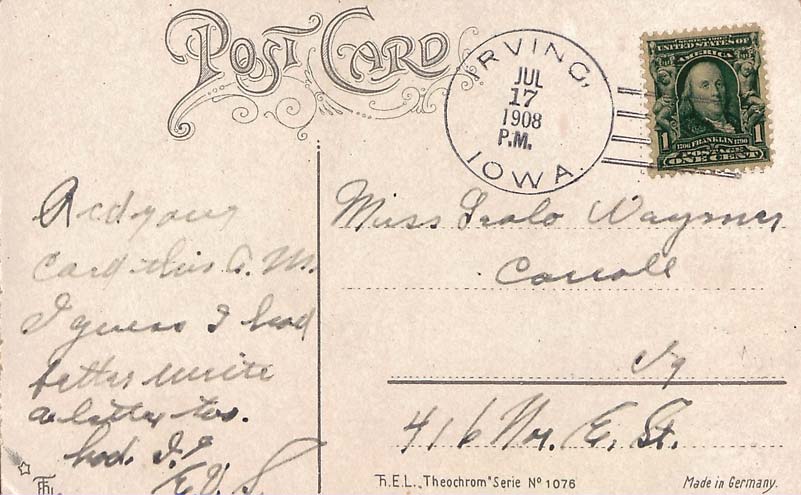 POST CARD
IRVING,
JUL
17
1908
P.M.
IOWA.
SERIES 1902
UNITED STATES OF
AMERICA
1 1
1706 FRANKLIN 1790
POSTAGE
ONE CENT
Rcd your
card this A.M.
I guess I had
better write
a letter too.
Miss
Carroll
Ia
416 No. E. St.
H.E.L. „Theochrom" Serie Nº 1076
Made in Germany.